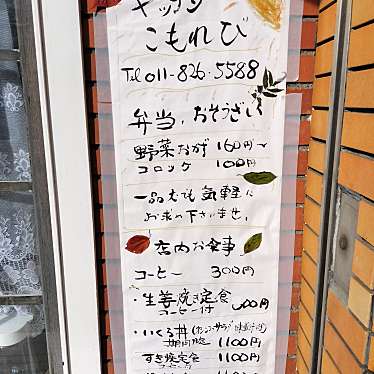 キッチン
こもれび
Tel 011-826-5588
弁当、おそうざい
野菜かき 160円〜
コロッケ 100円
一品でも気軽に
お求め下さいませ。
店内お食事
コーヒー 300円
・生姜焼き定食
コーヒー付 円
・いくら丼
期間限定 1100円
すき焼定食 1100円